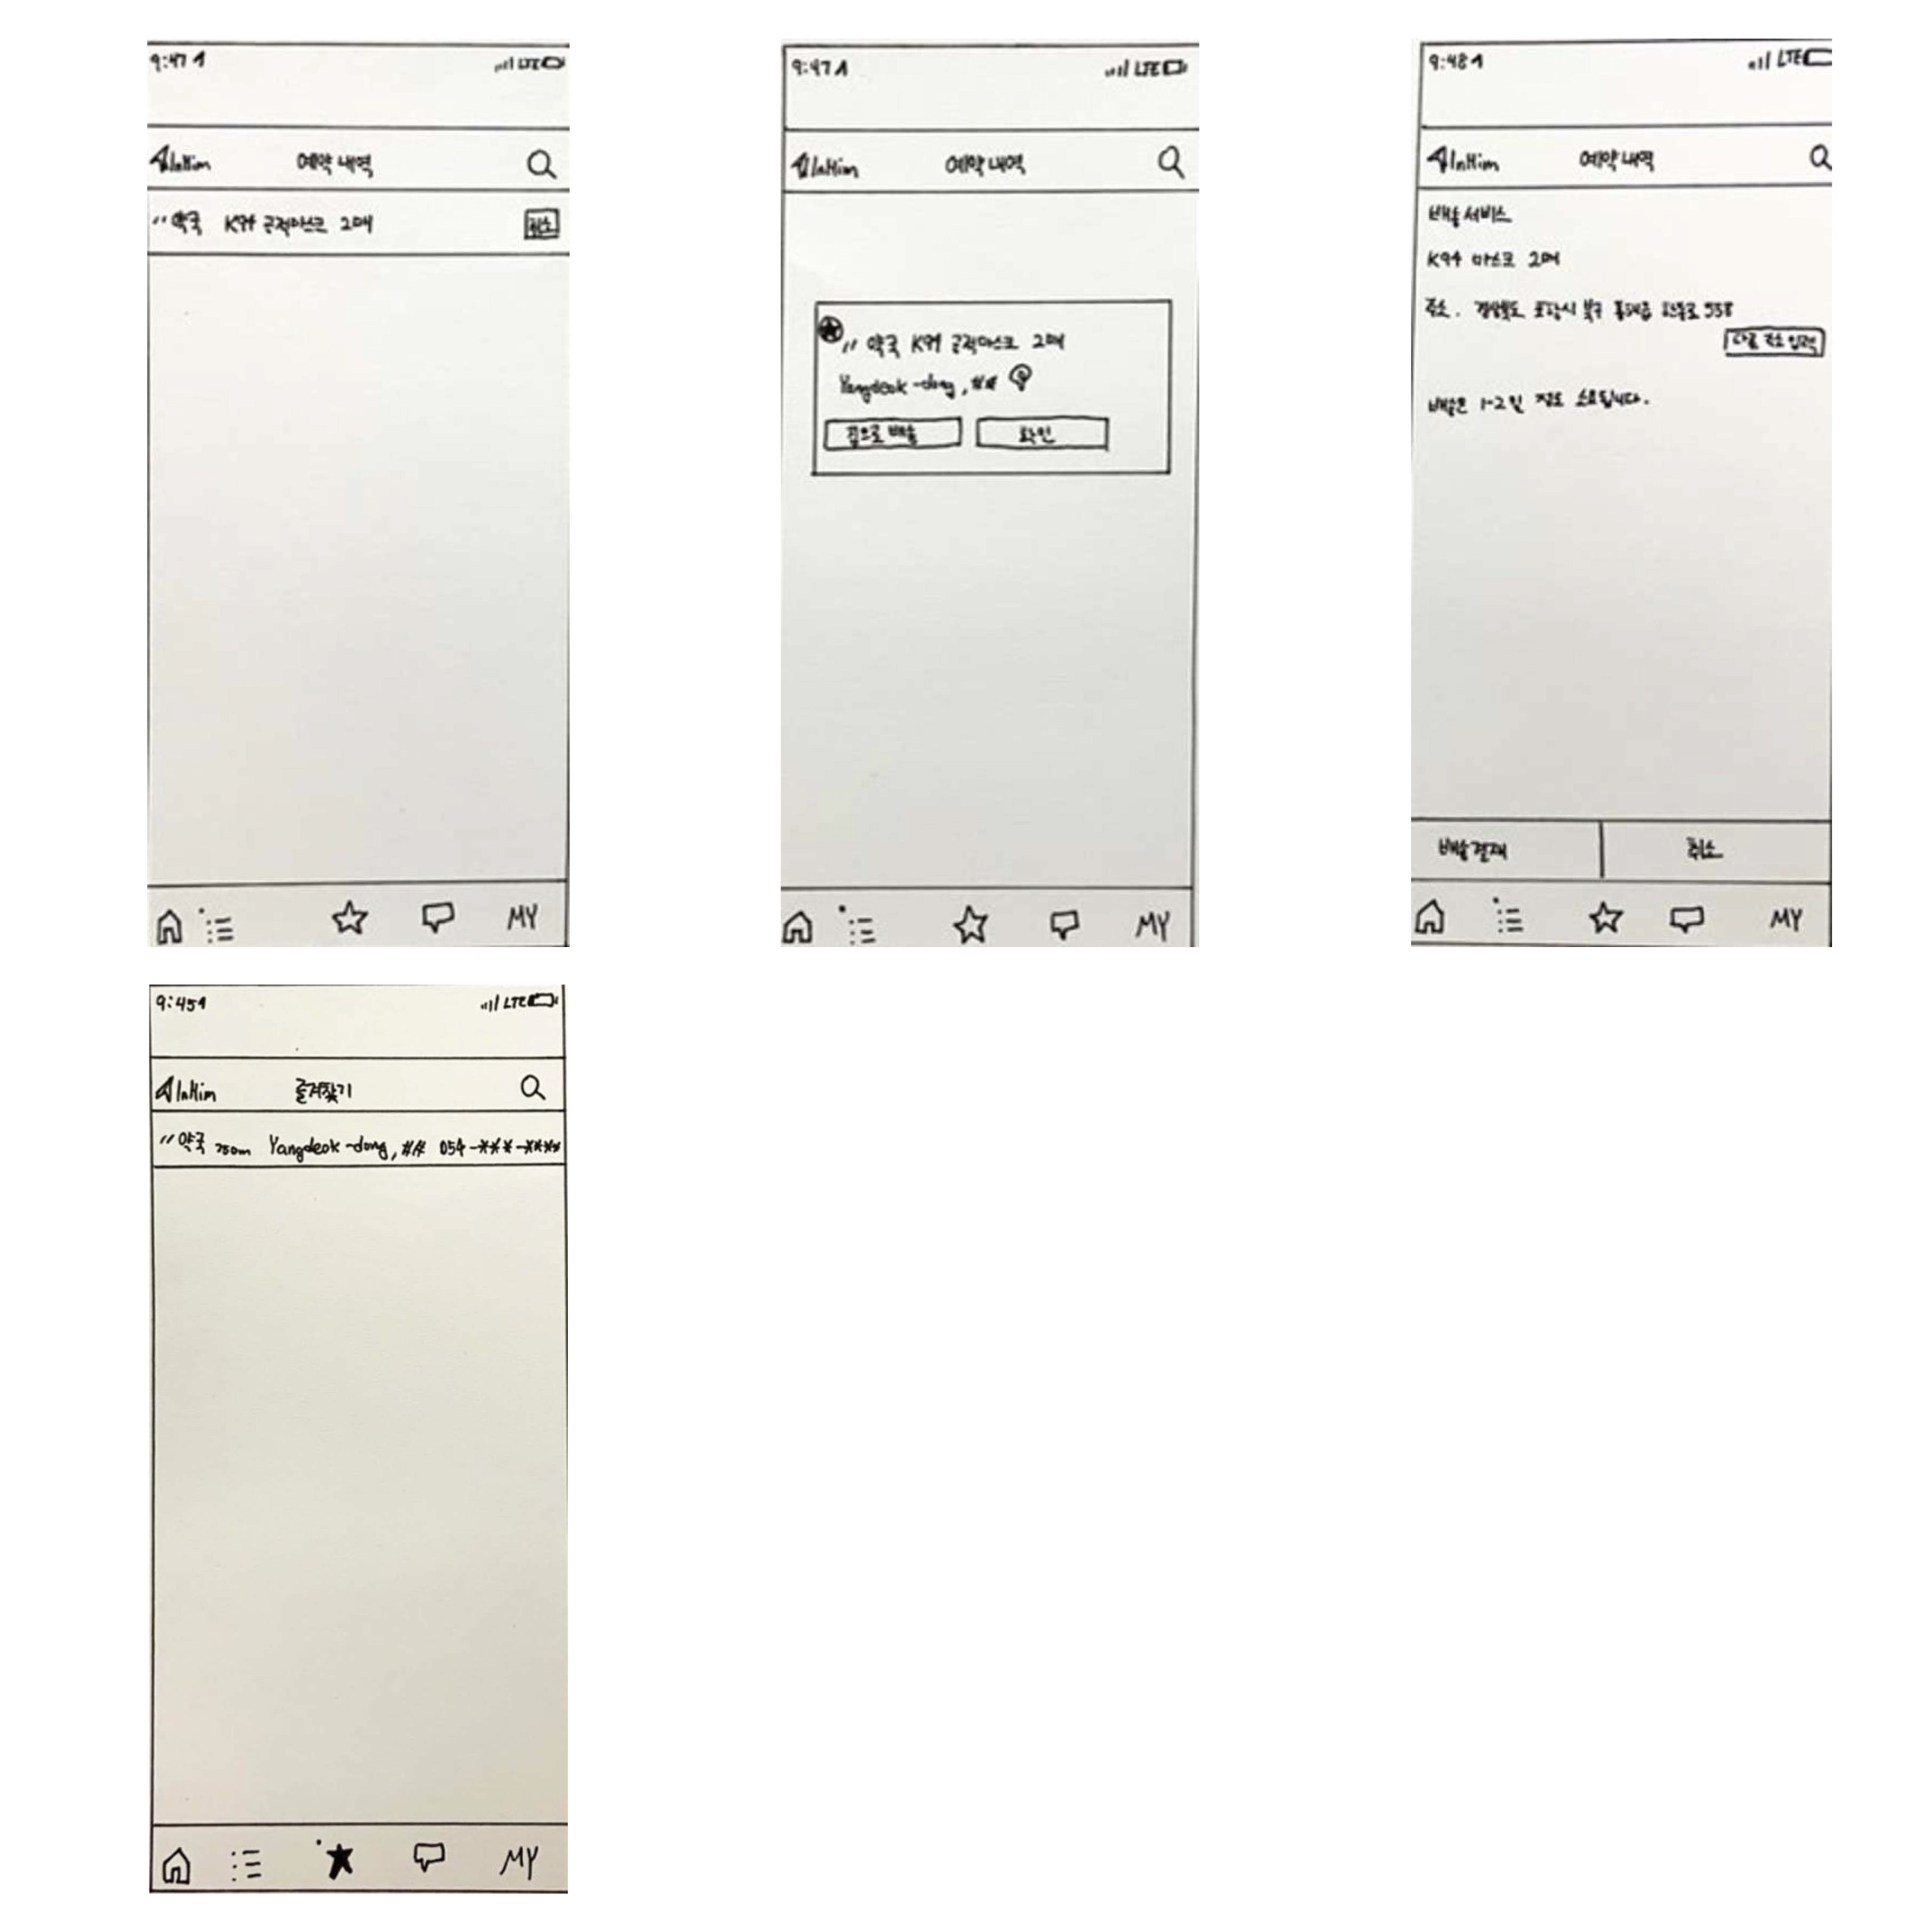 9:47
LTE
InHim 예약 내역
〃약국 K94 공적마스크 2매 취소
MY
9:47
LTE
InHim 예약 내역
〃약국 K94 공적마스크 2매
Yangdeok-dong, ##
집으로 배송 확인
MY
9:48
LTE
InHim 예약 내역
배송 서비스
K94 마스크 2매
주소. 경상북도 포항시 북구 흥해읍 한동로 558
다른 주소 입력
배송은 1-2일 정도 소요됩니다.
배송결재 취소
MY
9:45
LTE
InHim 즐겨찾기
〃약국 750m Yangdeok-dong, ## 054-***-****
MY